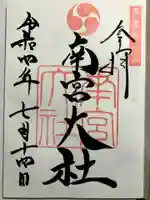 奉拝
南宮大社
令和四年七月十四日